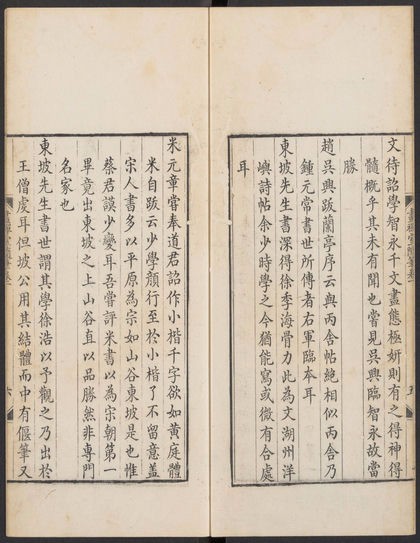 文待詔學智永千文盡態極妍則有之得神得
髓概乎其未有聞也嘗見吳興臨智永故當
勝
趙吳興跋蘭亭序云與丙舍帖絕相似丙舍乃
鍾元常書世所傳者右軍臨本耳
東坡先生書深得徐季海骨力此為文湖州洋
嶼詩帖余少時學之今猶能寫或微有合處
耳
米元章嘗奉道君詔作小楷千字欲如黃庭體
米自跋云少學顏行至於小楷了不留意蓋
宋人書多以平原為宗如山谷東坡是也惟
蔡君謨少變耳吾嘗評米書以為宗朝第一
畢竟出東坡之上山谷直以品勝然非專門
名家也
東坡先生書世謂其學徐浩以予觀之乃出於
王僧虔耳但坡公用其結體而中有偃筆又